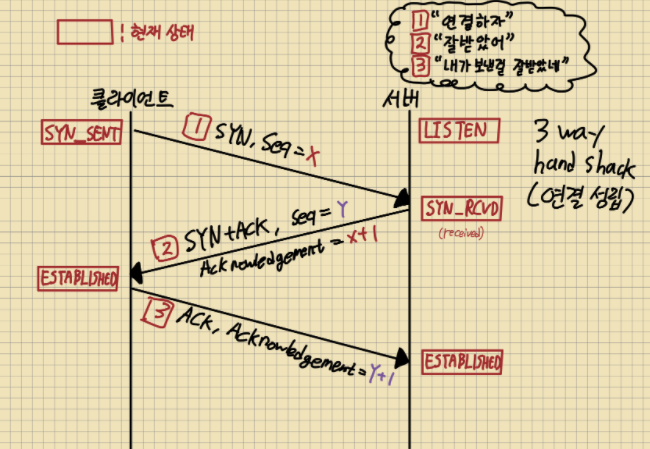 : 현재 상태
1 "연결하자"
2 "잘받았어"
3 "내가 보낸걸 잘받았네"
클라이언트
서버
SYN_SENT
1 SYN, Seq = X
LISTEN
3 way
hand shack
(연결 성립)
SYN_RCVD
(received)
2 SYN+ACK, seq = Y
Acknowledgement = x+1
ESTABLISHED
3 ACK, Acknowledgement = Y+1
ESTABLISHED